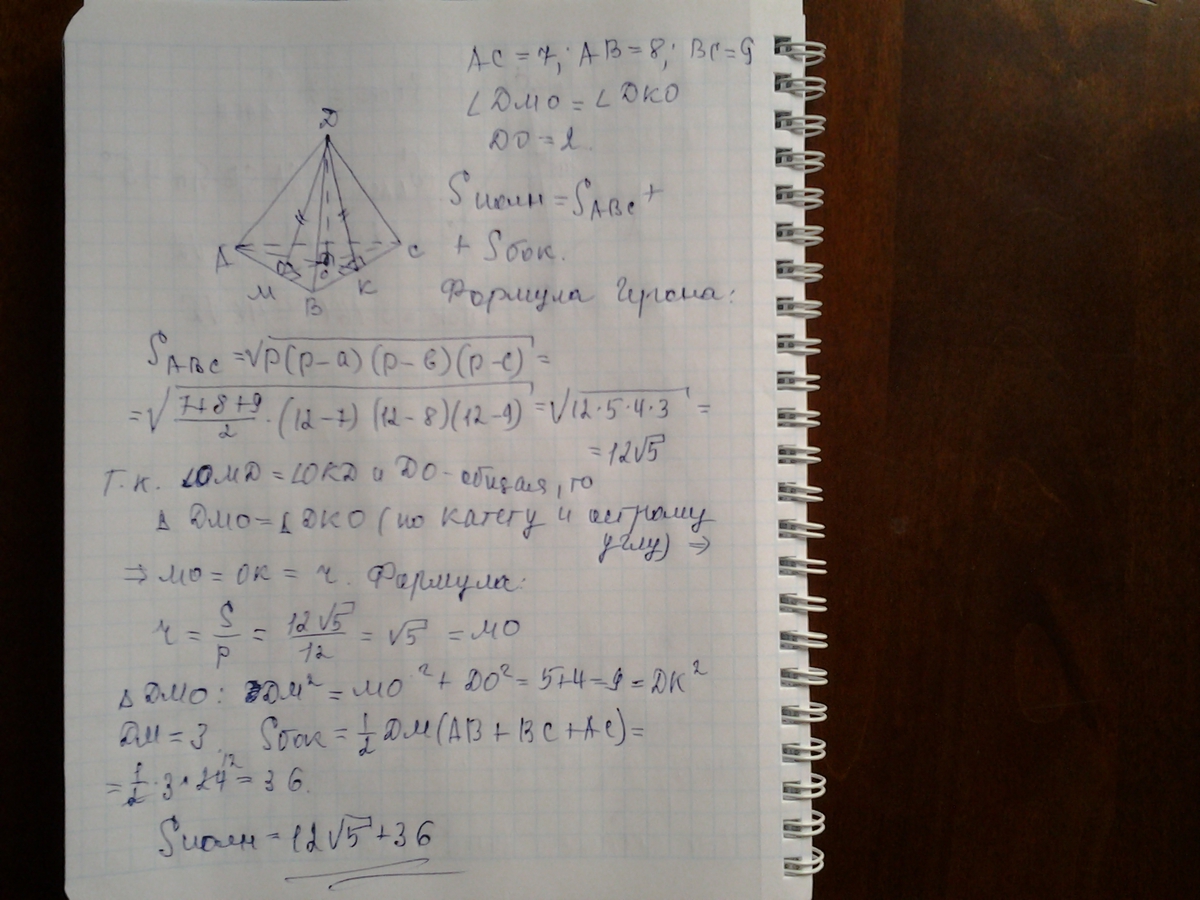 AC = 7; AB = 8; BC = 9
∠DMO = ∠DKO
DO = 2
Sполн = S_ABC +
+ Sбок.
Формула Герона:
D
A
C
M
O
K
B
S_ABC = √p(p-a)(p-в)(p-c) =
= √(7+8+9)/2 · (12-7)(12-8)(12-9) = √12·5·4·3 =
= 12√5
Т.к. ∠OMD = ∠OKD и DO - общая, то
Δ DMO = Δ DKO (по катету и острому
углу) ⇒
⇒ MO = OK = r. Формула:
r = S/p = 12√5/12 = √5 = MO
Δ DMO: DM² = MO² + DO² = 5+4 = 9 = DK²
DM = 3. Sбок = 1/2 DM(AB + BC + AC) =
= 1/2 · 3 · 24 12 = 36.
Sполн = 12√5 + 36